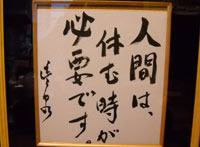 人間は、
休む時が
必要です。